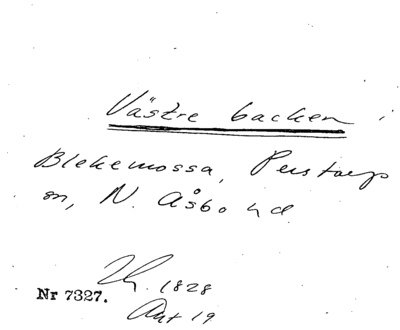 Västre backen i
Blekemossa, Perstorps
sn, N. Åsbo hd.
1828
Nr 7327.
Ant 19